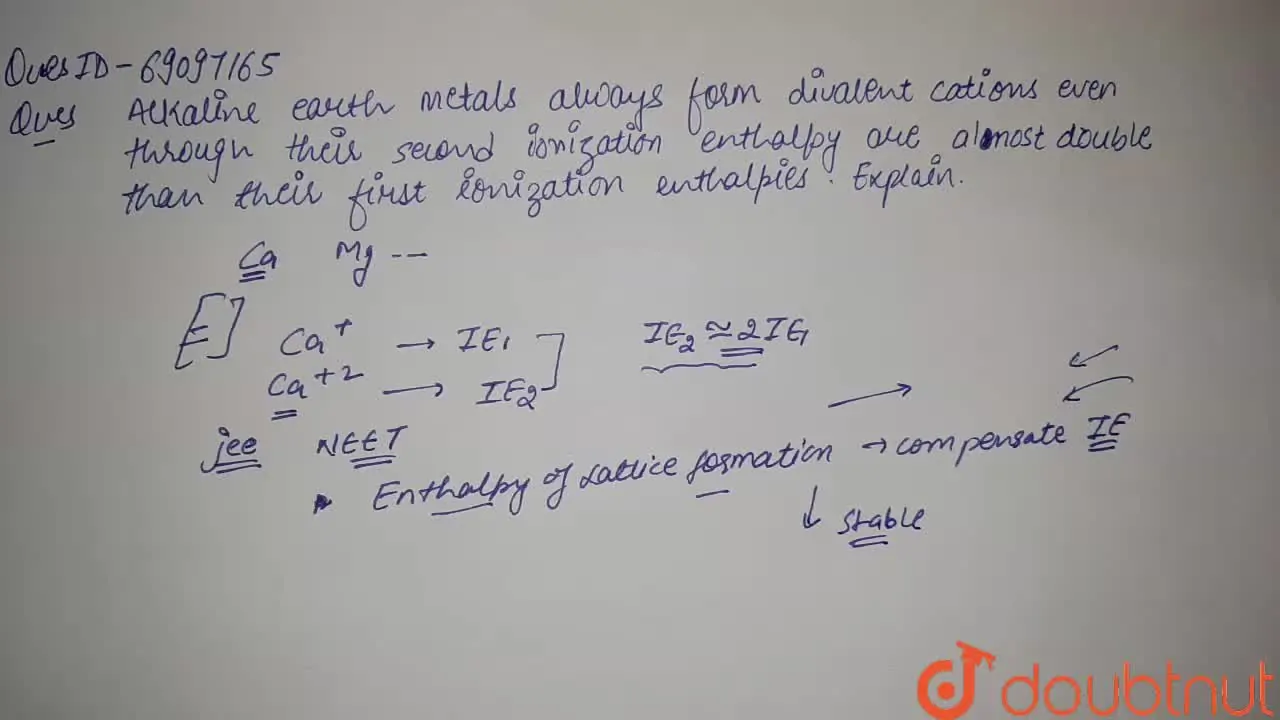 Ques ID - 69097165
Ques Alkaline earth metals always form divalent cations even
through their second ionization enthalpy are almost double
than their first ionization enthalpies. Explain.
Ca Mg --
[E] Ca+ → IE1 IE2 ≈ 2IE1
Ca+2 → IE2
jee NEET
Enthalpy of Lattice formation → compensate IE
↓ stable
doubtnut